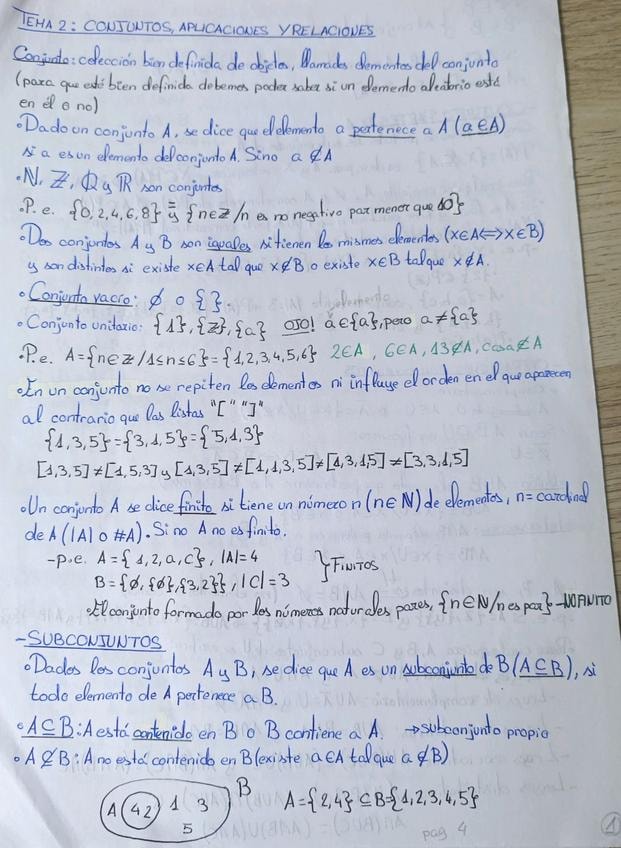 TEMA 2: CONJUNTOS, APLICACIONES Y RELACIONES
Conjunto: colección bien definida de objetos, llamados elementos del conjunto
(para que esté bien definida debemos poder saber si un elemento aleatorio está
en él o no)
•Dado un conjunto A, se dice que el elemento a pertenece a A (a∈A)
si a es un elemento del conjunto A. Sino a∉A
•ℕ, ℤ, ℚ y ℝ son conjuntos
•P.e. {0,2,4,6,8} = y {n∈ℤ/n es no negativo par menor que 10}
•Dos conjuntos A y B son iguales si tienen los mismos elementos (x∈A⟺x∈B)
y son distintos si existe x∈A tal que x∉B o existe x∈B tal que x∉A.
•Conjunto vacío: ∅ o { }.
•Conjunto unitario: {1}, {ℤ}, {a} OJO! a∈{a}, pero a≠{a}
elemento
•P.e. A={n∈ℤ/1≤n≤6}={1,2,3,4,5,6} 2∈A, 6∈A, 13∉A, casa∉A
•En un conjunto no se repiten los elementos ni influye el orden en el que aparecen
al contrario que las listas "[" "]"
{1,3,5}={3,1,5}={5,1,3}
[1,3,5]≠[1,5,3] y [1,3,5]≠[1,1,3,5]≠[1,3,1,5]≠[3,3,1,5]
•Un conjunto A se dice finito si tiene un número n (n∈ℕ) de elementos, n=cardinal
de A (|A| o #A). Si no A no es finito.
-p.e. A={1,2,a,c}, |A|=4
B={∅,{∅},{3,2}}, |C|=3 } FINITOS
•El conjunto formado por los números naturales pares, {n∈ℕ/n es par}-NO FINITO
-SUBCONJUNTOS
•Dados los conjuntos A y B, se dice que A es un subconjunto de B (A⊆B), si
todo elemento de A pertenece a B.
•A⊆B: A está contenido en B o B contiene a A. →subconjunto propio
•A⊈B: A no está contenido en B (existe a∈A tal que a∉B)
A 4 2 1 3 5 B A={2,4}⊆B={1,2,3,4,5}
pag 4
1